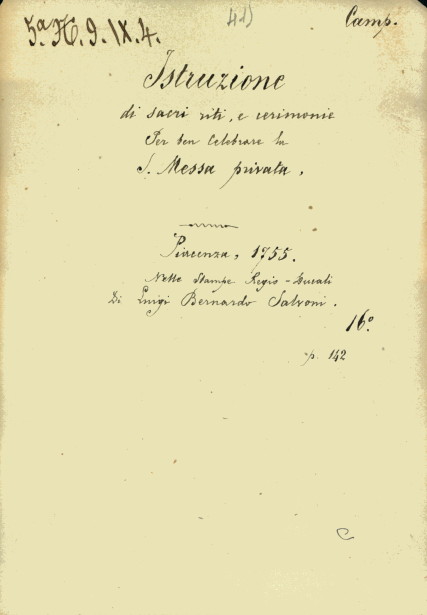 5ª H. 9. IX. 4.
41)
Camp.
Istruzione
di sacri riti, e cerimonie
Per ben Celebrare la
S. Messa privata.
Piacenza, 1755.
Nelle Stampe Regio-Ducali
Di Luigi Bernardo Salvoni.
16º
p. 142
C